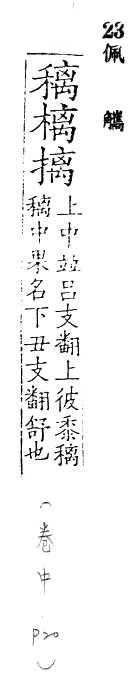 23
佩觿
䅻樆摛
上中並呂支翻上彼黍䅻
䅻中果名下丑支翻舒也
(卷中 P20)